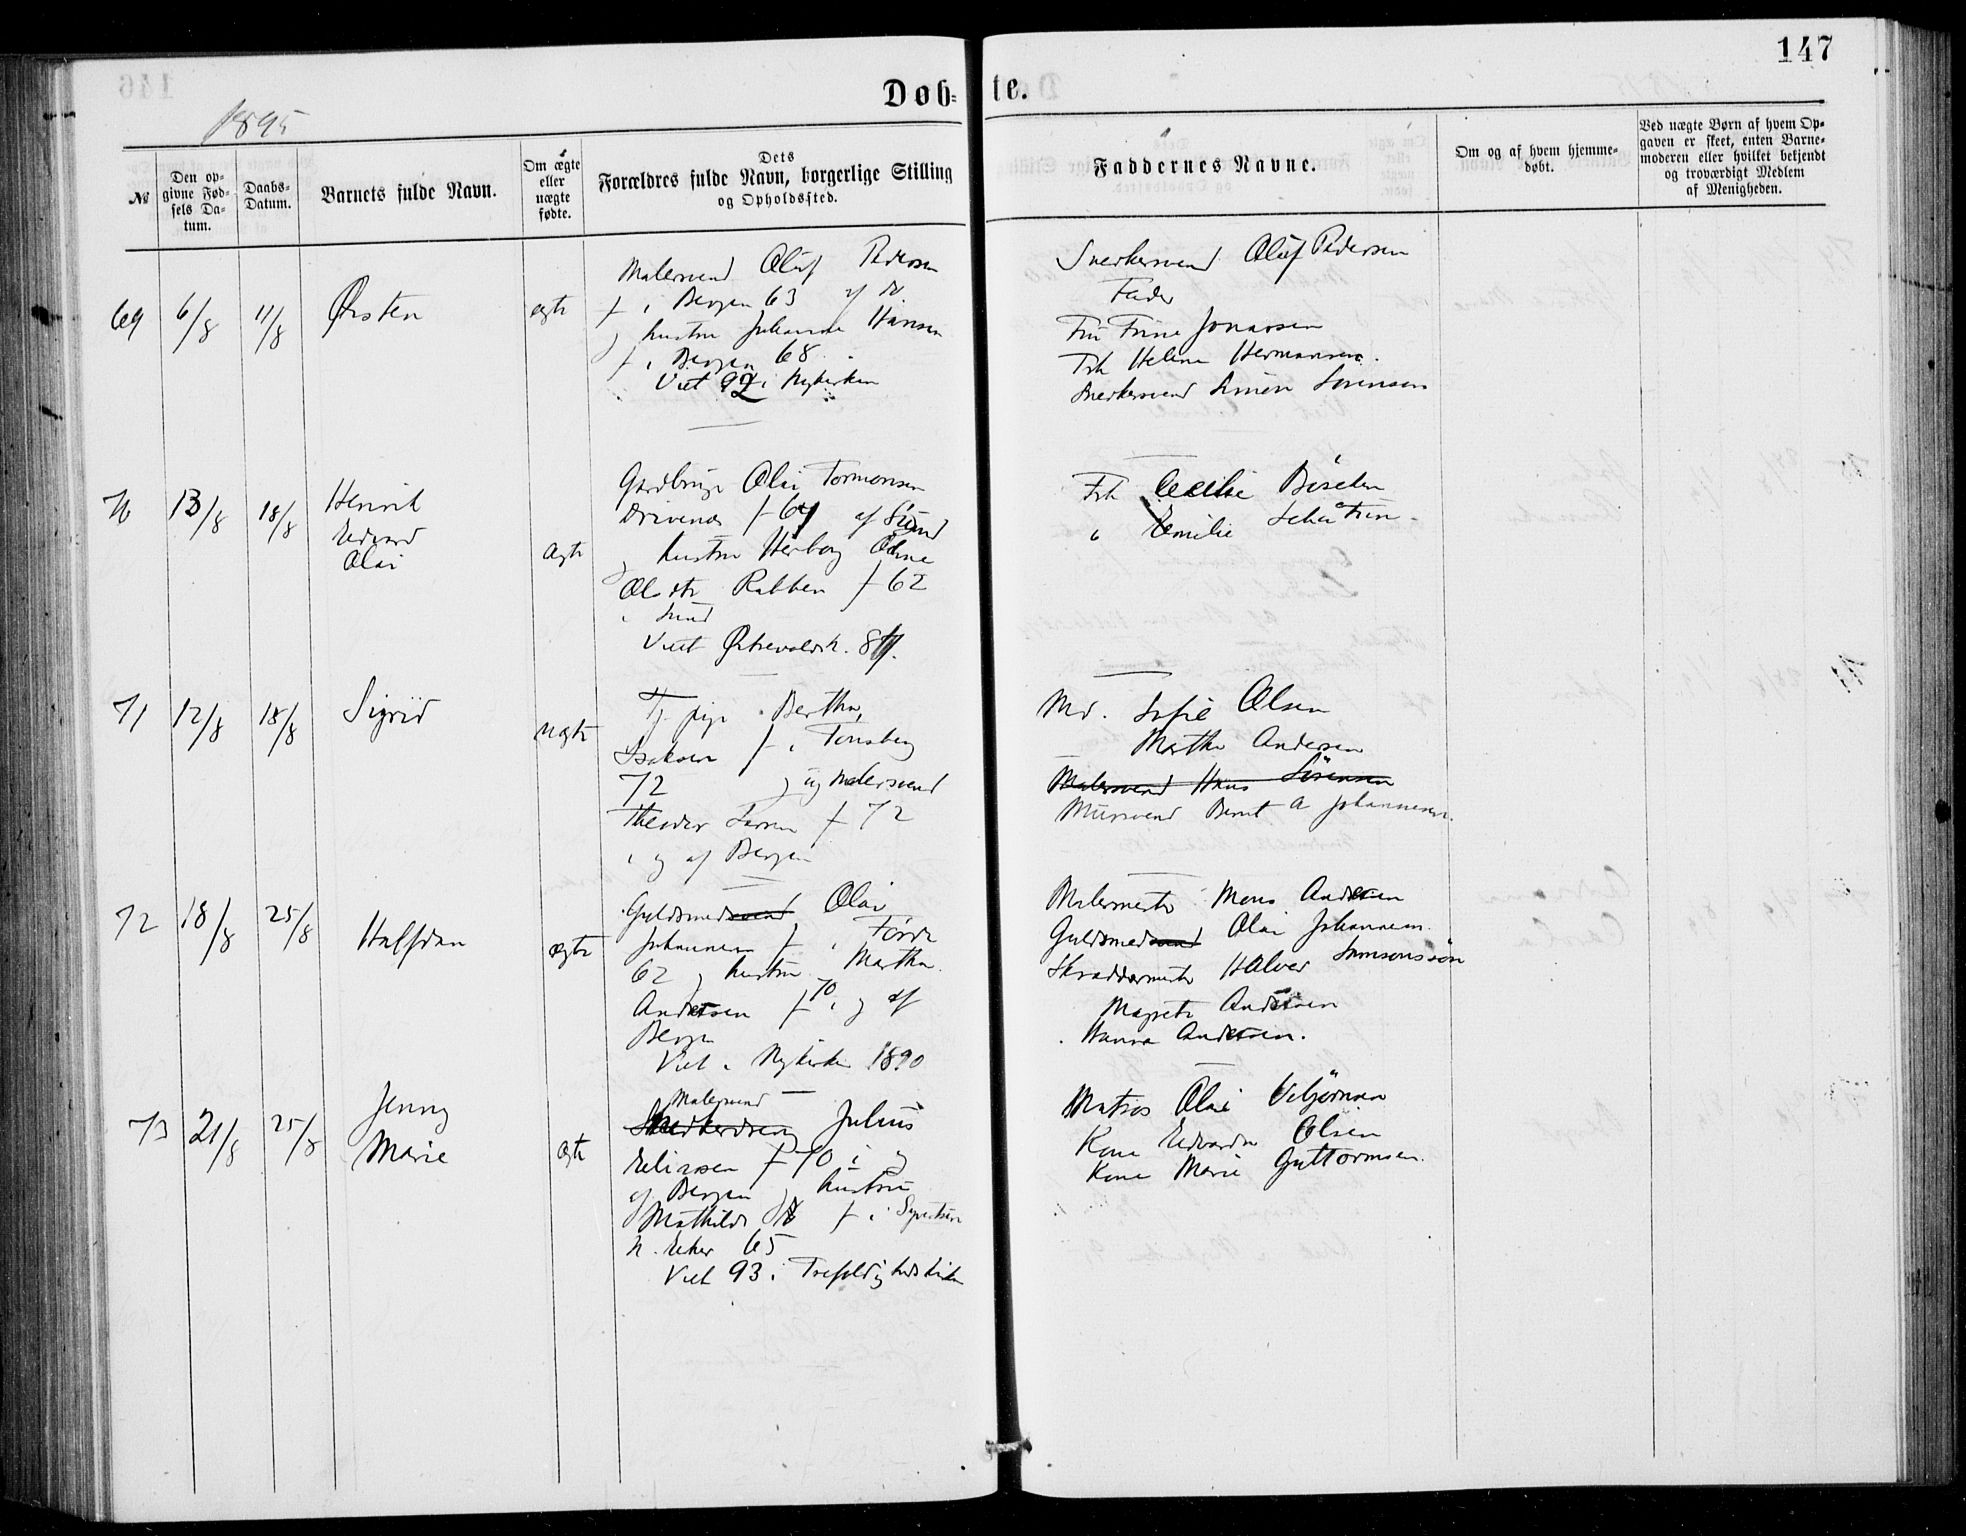 147
Døb- te.
1895
№
Den op-
givne Fød-
sels Da-
tum.
Daabs-
Datum.
Barnets fulde Navn.
Om ægte
eller
uægte
fødte.
Dets
Forældres fulde Navn, borgerlige Stilling
og Opholdssted.
Faddernes Navne.
Om og af hvem hjemme-
døbt.
Ved uægte Børn af hvem Op-
gaven er skeet, enten Barne-
moderen eller hvilket bekjendt
og troværdigt Medlem
af Menigheden.
69 6/8 11/8 Ørsten ægte
Malersvend Oluf Pedersen
f i Bergen 63 af do
og hustru Johanne Hansen
f i Bergen 68
Viet 92 i Nykirken
Snedkersvend Oluf Pedersen
Fader
Fru Trine Jonassen
Frk Helene Hermansen.
Snedkersvend Simon Sørensen
70 13/8 18/8 Henrik
Edvard
Olai
ægte
Gardbruger Olai Tormonsen
Drivenes f 64 af Sund
og hustru Herborg Oline
Olsdtr Rabben f 62
i Sund
Viet 8
Frk Cecilie
" Emilie
71 12/8 18/8 Sigrid uægte
Tj. pige Bertha
Isaksen f i Tønsberg
72 og ug Malersvend
Theodor Larsen f 72
i og af Bergen
Md. Sofie Olsen
Martha Andersen
Malersvend Hans Sørensen
Mursvend Bernt A Johannesen.
72 18/8 25/8 Halfdan ægte
Guldsmedsvend Olai
Johannesen f i Førde
62 og hustru Martha
Andersen f 70 i og af
Bergen
Viet i Nykirken 1890
Malermester Mons Andersen
Guldsmedsvend Olai Johannesen.
Skræddermester Halvor Simonssøn
Magrete Andersen
Hanna Andersen.
73 21/8 25/8 Jenny
Marie
ægte
Malersvend
Snedkerdreng Julius
Eliassen f 70 i og
af Bergen og hustru
Mathilde f i
N. Eker 65
Viet 93 i Trefoldighedskirken
Matros Olai
Kone Edvarda Olsen
Kone Marie Guttormsen.